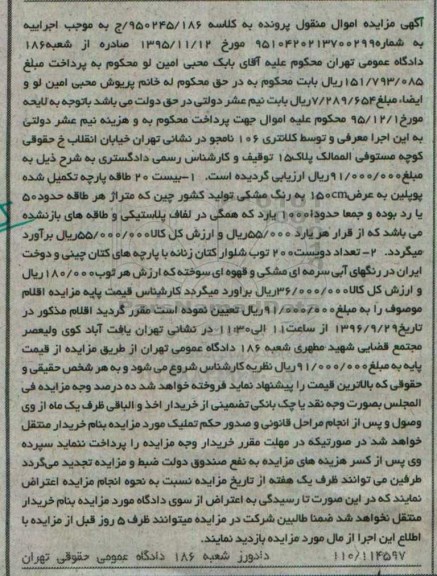 آگهی مزایده اموال منقول پرونده به کلاسه ۹۵۰۲۴۵/۱۸۶/ج به موجب اجراییه
به شماره۹۵۱۰۴۲۰۲۱۳۷۰۰۲۹۹ مورخ ۱۳۹۵/۱۱/۱۲ صادره از شعبه۱۸۶
دادگاه عمومی تهران محکوم علیه آقای بابک محبی امین لو محکوم به پرداخت مبلغ
۱۵۱/۷۹۳/۰۸۵ریال بابت محکوم به در حق محکوم له خانم پریوش محبی امین لو و
ایضا، مبلغ۷/۲۸۹/۶۵۴ریال بابت نیم عشر دولتی در حق دولت می باشد باتوجه به لایحه
مورخ۹۵/۱۲/۱ محکوم علیه اموال جهت پرداخت محکوم به و هزینه نیم عشر دولتی
به این اجرا معرفی و توسط کلانتری ۱۰۶ نامجو در نشانی تهران خیابان انقلاب خ حقوقی
کوچه مستوفی الممالک پلاک۱۵ توقیف و کارشناس رسمی دادگستری به شرح ذیل به
مبلغ۹۱/۰۰۰/۰۰۰ریال ارزیابی گردیده است. ۱-بیست ۲۰ طاقه پارچه تکمیل شده
پوپلین به عرض۱۵۰cm به رنگ مشکی تولید کشور چین که متراژ هر طاقه حدود۵۰
یا رد بوده و جمعا حدود۱۰۰۰ یارد که همگی در لفاف پلاستیکی و طاقه های بازنشده
می باشد که از قرار هر یارد ۵۵/۰۰۰ریال و ارزش کل کالا۵۵/۰۰۰/۰۰۰ریال برآورد
میگردد. ۲- تعداد دویست۲۰۰ ثوب شلوار کتان زنانه با پارچه های کتان چینی و دوخت
ایران در رنگهای آبی سرمه ای مشکی و قهوه ای سوخته که ارزش هر ثوب۱۸۰/۰۰۰ریال
و ارزش کل کالا۳۶/۰۰۰/۰۰۰ریال براورد میگردد کارشناس قیمت پایه مزایده اقلام
موصوف را به مبلغ۹۱/۰۰۰/۰۰۰ریال تعیین نموده است مقرر گردید اقلام مذکور در
تاریخ۱۳۹۶/۹/۲۹ از ساعت۱۱ الی۱۱:۳۰ در نشانی تهران یافت آباد کوی ولیعصر
مجتمع قضایی شهید مطهری شعبه ۱۸۶ دادگاه عمومی تهران از طریق مزایده از قیمت
پایه به مبلغ۹۱/۰۰۰/۰۰۰ریال نظریه کارشناس شروع می شود و به هر شخص حقیقی و
حقوقی که بالاترین قیمت را پیشنهاد نماید فروخته خواهد شد ده درصد وجه مزایده فی
المجلس بصورت وجه نقد یا چک بانکی تضمینی از خریدار اخذ و الباقی ظرف یک ماه از وی
وصول و پس از انجام مراحل قانونی و صدور حکم تملیک مورد مزایده بنام خریدار منتقل
خواهد شد در صورتیکه در مهلت مقرر خریدار وجه مزایده را پرداخت ننماید سپرده
وی پس از کسر هزینه های مزایده به نفع صندوق دولت ضبط و مزایده تجدید می‌گردد
طرفین می توانند ظرف یک هفته از تاریخ مزایده نسبت به نحوه انجام مزایده اعتراض
نمایند که در این صورت تا رسیدگی به اعتراض از سوی دادگاه مورد مزایده بنام خریدار
منتقل نخواهد شد ضمنا طالبین شرکت در مزایده میتوانند ظرف ۵ روز قبل از مزایده با
اطلاع این اجرا از مال مورد مزایده بازدید نمایند.
۱۱۰/۱۱۴۵۹۷ دادورز شعبه ۱۸۶ دادگاه عمومی حقوقی تهران